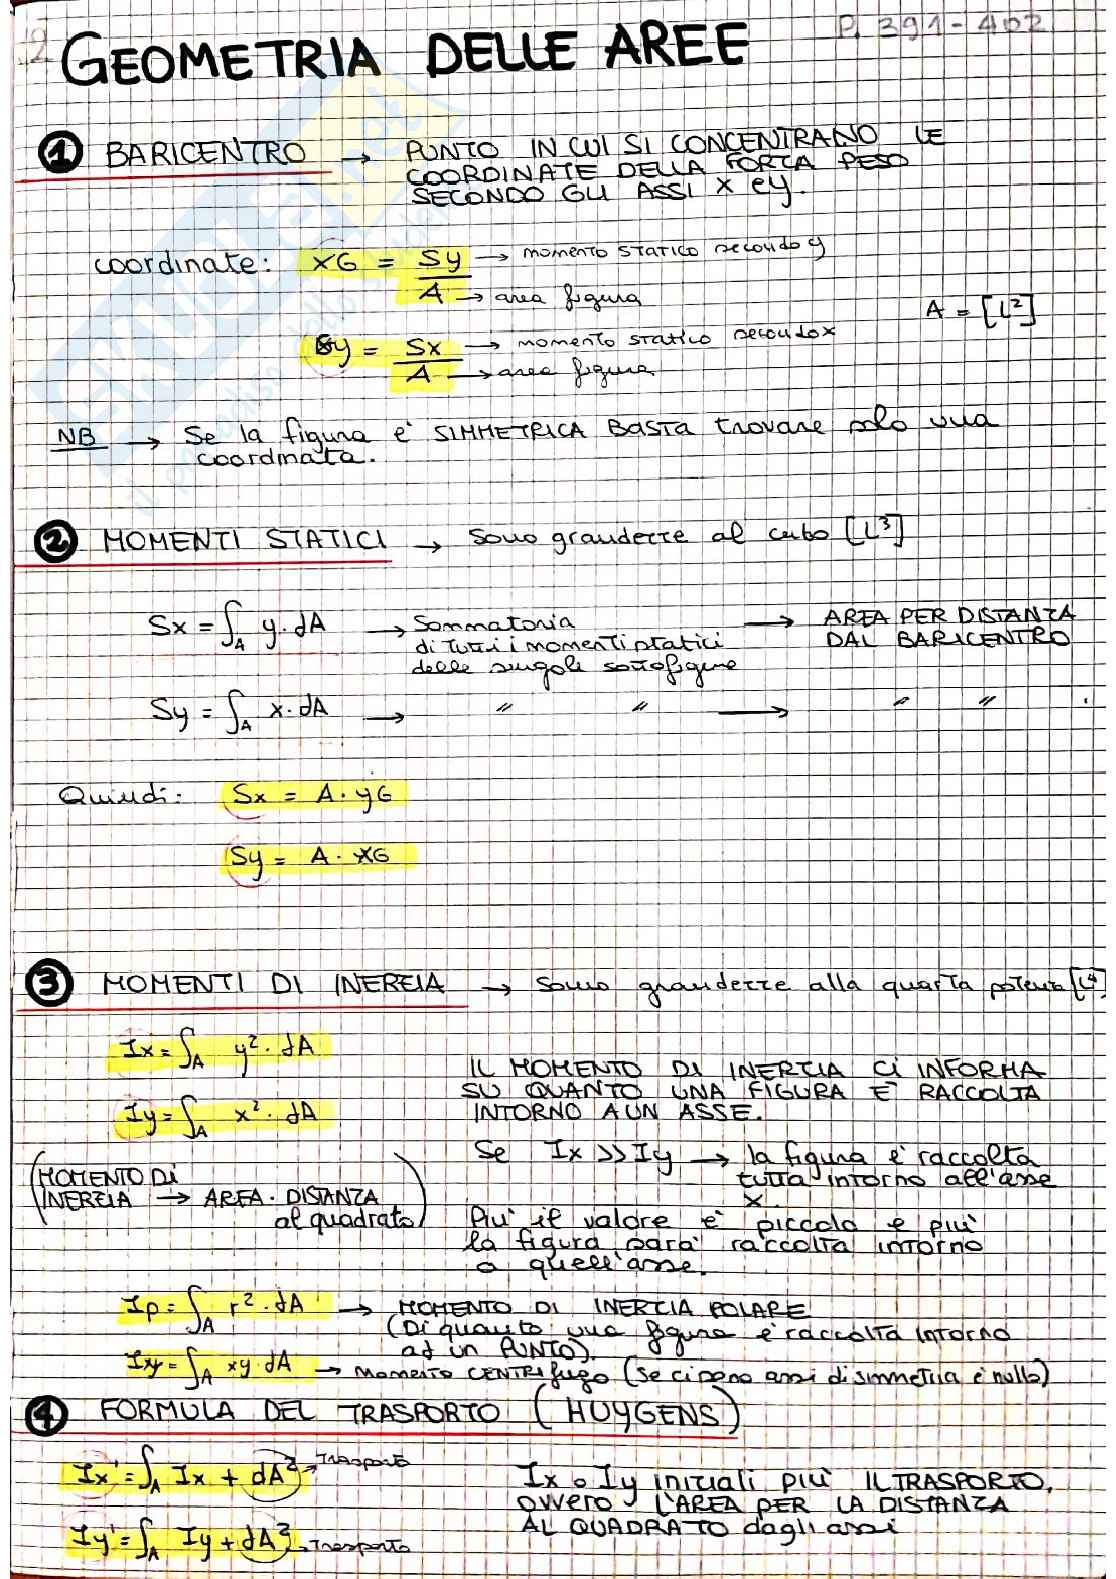 P. 391-402
GEOMETRIA DELLE AREE
① BARICENTRO → PUNTO IN CUI SI CONCENTRANO LE
COORDINATE DELLA FORZA PESO
SECONDO GLI ASSI X e y.
coordinate: XG = Sy → momento statico secondo y
A → area figura
A = [L²]
Gy = Sx → momento statico secondo x
A → area figura
NB → Se la figura e' SIMMETRICA BASTA trovare solo una
coordinata.
② MOMENTI STATICI → Sono grandezze al cubo [L³]
Sx = ∫A y · dA → Sommatoria → AREA PER DISTANZA
di tutti i momenti statici DAL BARICENTRO
delle singole sottofigure
Sy = ∫A x · dA → " " → " "
Quindi: Sx = A · yG
Sy = A · XG
③ MOMENTI DI INERZIA → Sono grandezze alla quarta potenza [L⁴]
Ix = ∫A y² · dA
Iy = ∫A x² · dA
(MOMENTO Di
INERZIA → AREA · DISTANZA
al quadrato)
IL MOMENTO DI INERZIA Ci INFORMA
SU QUANTO UNA FIGURA E' RACCOLTA
INTORNO A UN ASSE.
Se Ix >> Iy → la figura e' raccolta
tutta intorno all'asse
X.
Piu' il valore e' piccolo e piu'
la figura sara' raccolta intorno
a quell'asse.
Ip = ∫A r² · dA → MOMENTO DI INERZIA POLARE
(Di quanto una figura e' raccolta intorno
ad un PUNTO).
Ixy = ∫A xy · dA → Momento CENTRIfugo (Se ci sono assi di simmetria e' nullo)
④ FORMULA DEL TRASPORTO (HUYGENS)
Ix' = ∫A Ix + dA² → Trasporto
Iy' = ∫A Iy + dA² → Trasporto
Ix o Iy iniziali piu' IL TRASPORTO,
ovvero L'AREA PER LA DISTANZA
AL QUADRATO dagli assi